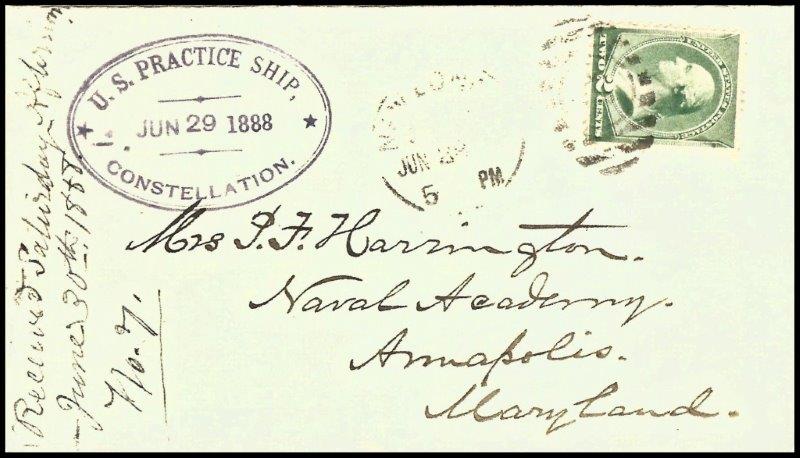 U. S. PRACTICE SHIP,
JUN 29 1888
CONSTELLATION.
JUN 29
5 PM
UNITED STATES POSTAGE
TWO 2 CENTS
Mrs P. F. Harrington.
Naval Academy.
Annapolis.
Maryland.
Received Saturday
June 30th 1888.
No. 7.